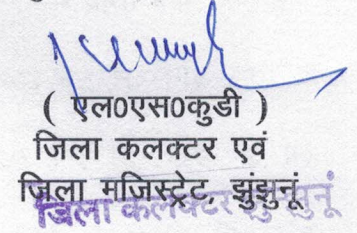 ( एल0एस0कुडी )
जिला कलक्टर एवं
जिला मजिस्ट्रेट, झुंझुनूं
जिला कलेक्टर झुन्झुनूं